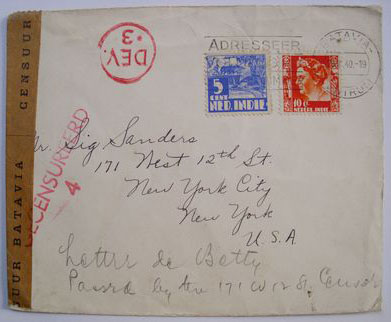 CENSUUR
UUR BATAVIA
DEV.
3.
ADRESSEER
ATAVIA
.40.-19
TRUM
5
CENT
NED. INDIE
10 c
NEDERL. INDIE
GECENSUREERD
4
Mr. Sig Sanders
171 West 12th St.
New York City
New York
U.S.A
Letter de Betty
Passed by the 171 W 12 St. Censor